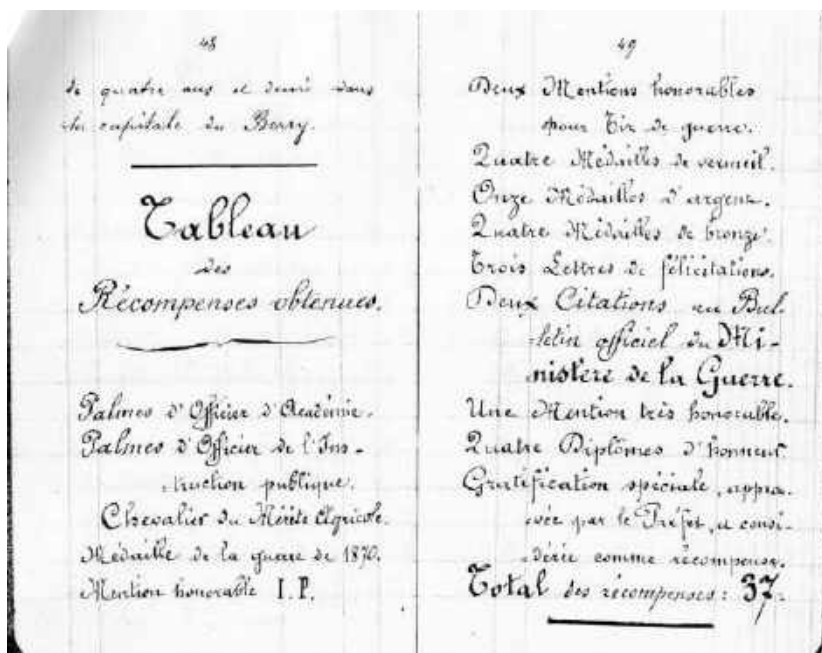 48
de quatre ans et demi dans
la capitale du Berry.
Tableau
des
Récompenses obtenues.
Palmes d'Officier d'Académie.
Palmes d'Officier de l'Ins-
truction publique.
Chevalier du Mérite Agricole.
Médaille de la guerre de 1870.
Mention honorable I.P.
49
Deux Mentions honorables
pour Tir de guerre.
Quatre Médailles de vermeil.
Onze Médailles d'argent.
Quatre Médailles de bronze.
Trois Lettres de félicitations.
Deux Citations au Bul-
letin officiel du Mi-
nistère de la Guerre.
Une Mention très honorable.
Quatre Diplômes d'honneur.
Gratification spéciale, appro-
vée par le Préfet, et consi-
dérée comme récompense.
Total des récompenses : 37.